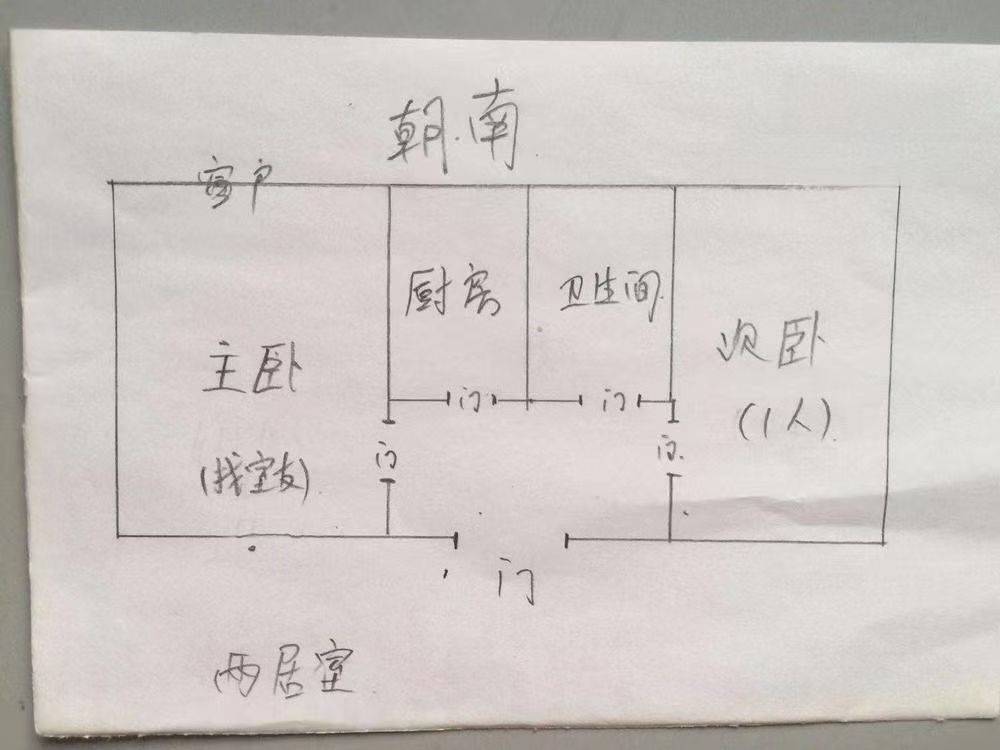 朝南
客户
厨房
卫生间
主卧
次卧
(1人)
门
门
门
门
(找室友)
门
两居室